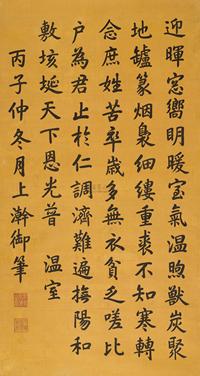 迎暉窓嚮明暖室氣温煦獸炭聚
地罏篆烟裊細縷重裘不知寒轉
念庶姓苦卒歲多無衣貧乏嗟比
户為君止於仁調濟難遍撫陽和
敷垓埏天下恩光普 温室
丙子仲冬月上澣御筆